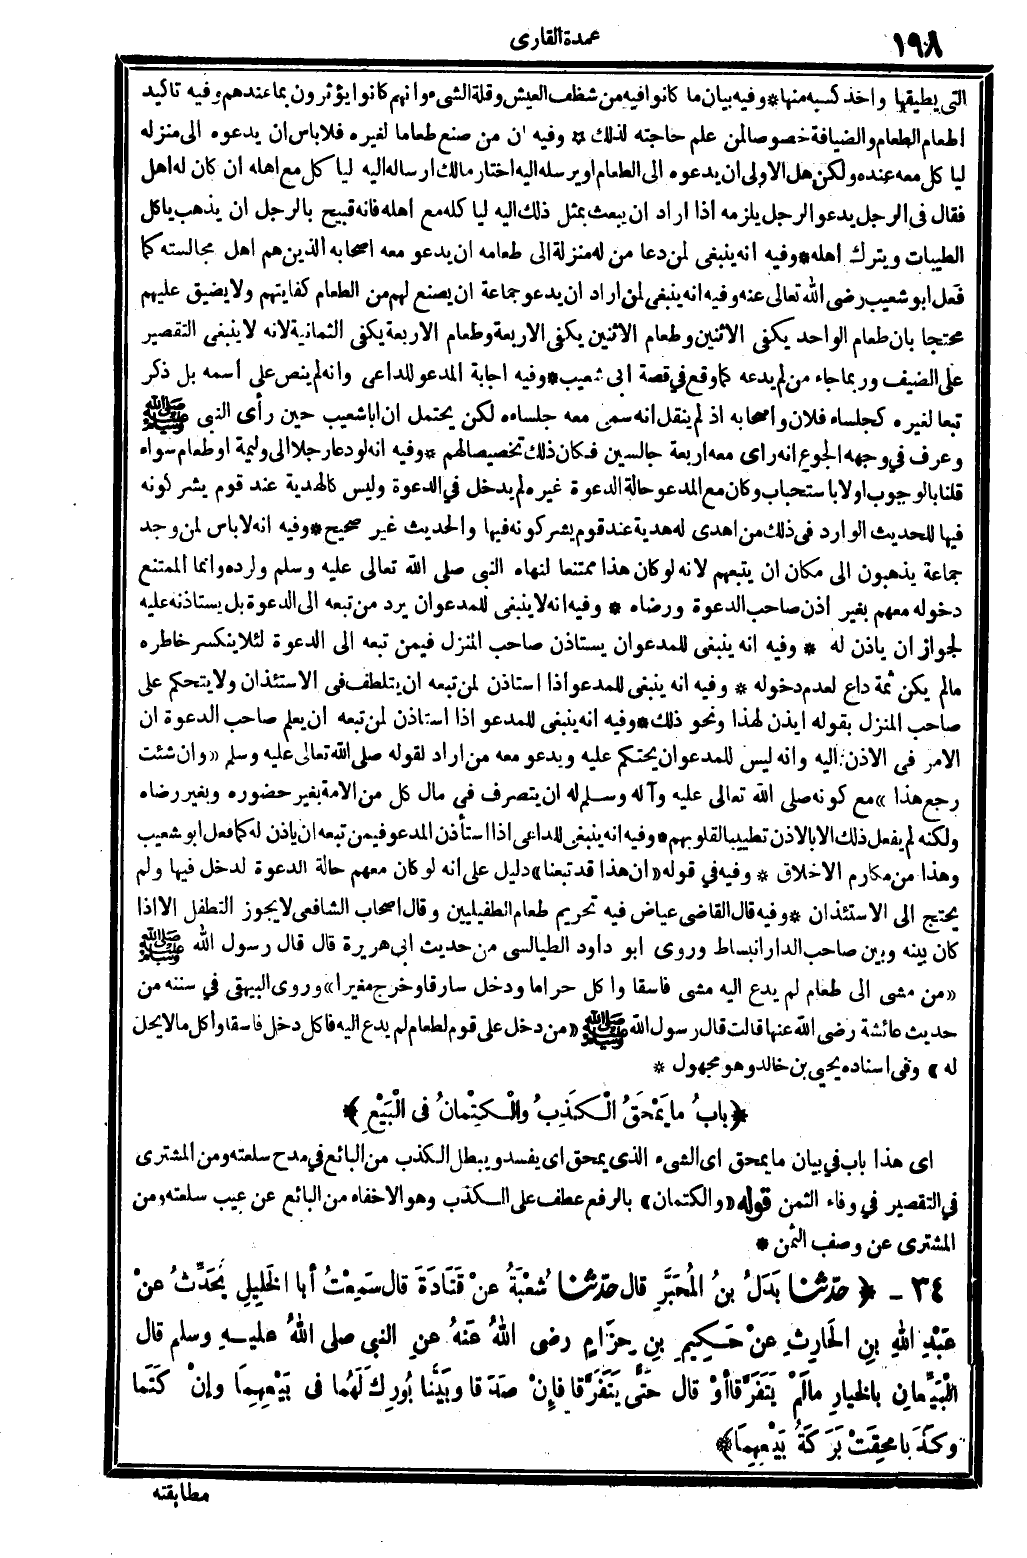 ١٩٨
عمدة القارى
التى يطيقها واخذ كسبه منها * وفيه بيان ما كانوا فيه من شظف العيش وقلة الشىء وانهم كانوا يؤثرون بما عندهم وفيه تاكيد
اطعام الطعام والضيافة خصوصا لمن علم حاجته لذلك * وفيه ان من صنع طعاما لغيره فلا باس ان يدعوه الى منزله
ليا كل معه عنده ولكن هل الاولى ان يدعوه الى الطعام او يرسله اليه اختار مالك ارساله اليه ليا كل مع اهله ان كان له اهل
فقال فى الرجل يدعو الرجل يلزمه اذا اراد ان يبعث بمثل ذلك اليه ليا كله مع اهله فانه قبيح بالرجل ان يذهب ياكل
الطيبات ويترك اهله * وفيه انه ينبغى لمن دعا من له منزلة الى طعامه ان يدعو معه اصحابه الذين هم اهل مجالسته كما
فعل ابو شعيب رضى الله تعالى عنه وفيه انه ينبغى لمن اراد ان يدعو جماعة ان يصنع لهم من الطعام كفايتهم ولا يضيق عليهم
محتجا بان طعام الواحد يكفى الاثنين وطعام الاثنين يكفى الاربعة وطعام الاربعة يكفى الثمانية لانه لا ينبغى التقصير
على الضيف وربما جاء من لم يدعه كما وقع في قصة ابى شعيب * وفيه اجابة المدعو للداعى وانه لم ينص على أسمه بل ذكر
تبعا لغيره كجلساء فلان واصحابه اذ لم ينقل انه سمى معه جلساءه لكن يحتمل ان ابا شعيب حين رأى النبى ﷺ
وعرف في وجهه الجوع انه راى معه اربعة جالسين فكان ذلك تخصيصا لهم * وفيه انه لو دعا رجلا الى وليمة او طعام سواء
قلنا بالوجوب اولا باستحباب وكان مع المدعو حالة الدعوة غيره لم يدخل في الدعوة وليس كالهدية عند قوم يشركونه
فيها للحديث الوارد فى ذلك من اهدى له هدية عند قوم يشركونه فيها والحديث غير صحيح * وفيه انه لا باس لمن وجد
جماعة يذهبون الى مكان ان يتبعهم لانه لو كان هذا ممتنعا لنهاه النبى صلى الله تعالى عليه وسلم ولرده وانما الممتنع
دخوله معهم بغير اذن صاحب الدعوة ورضاه * وفيه انه لا ينبغى للمدعو ان يرد من تبعه الى الدعوة بل يستاذنه عليه
لجواز ان ياذن له * وفيه انه ينبغى للمدعو ان يستاذن صاحب المنزل فيمن تبعه الى الدعوة لئلا ينكسر خاطره
مالم يكن ثمة داع لعدم دخوله * وفيه انه ينبغى للمدعو اذا استاذن لمن تبعه ان يتلطف فى الاستئذان ولا يتحكم على
صاحب المنزل بقوله ايذن لهذا ونحو ذلك * وفيه انه ينبغى للمدعو اذا استاذن لمن تبعه ان يعلم صاحب الدعوة ان
الامر فى الاذن اليه وانه ليس للمدعو ان يحتكم عليه ويدعو معه من اراد لقوله صلى الله تعالى عليه وسلم «وان شئت
رجع هذا» مع كونه صلى الله تعالى عليه وآله وسلم له ان يتصرف فى مال كل من الامة بغير حضوره وبغير رضاه
ولكنه لم يفعل ذلك الا بالاذن تطييبا لقلوبهم * وفيه انه ينبغى للداعى اذا استأذن المدعو فيمن تبعه ان ياذن له كما فعل ابو شعيب
وهذا من مكارم الاخلاق * وفيه في قوله «ان هذا قد تبعنا» دليل على انه لو كان معهم حالة الدعوة لدخل فيها ولم
يحتج الى الاستئذان * وفيه قال القاضى عياض فيه تحريم طعام الطفيليين وقال اصحاب الشافعى لا يجوز التطفل الا اذا
كان بينه وبين صاحب الدار انبساط وروى ابو داود الطيالسى من حديث ابى هريرة قال قال رسول الله ﷺ
«من مشى الى طعام لم يدع اليه مشى فاسقا واكل حراما ودخل سارقا وخرج مغيرا» وروى البيهقى في سننه من
حديث عائشة رضى الله عنها قالت قال رسول الله ﷺ «من دخل على قوم لطعام لم يدع اليه فاكل دخل فاسقا وأكل مالا يحل
له» وفى اسناده يحيى بن خالد وهو مجهول *
﴿ بابُ ما يَمْحَقُ الْكَذِبُ والْكِتْمانُ فى الْبَيْعِ ﴾
اى هذا باب في بيان ما يمحق اى الشىء الذى يمحق اى يفسد ويبطل الكذب من البائع في مدح سلعته ومن المشترى
في التقصير في وفاء الثمن قوله «والكتمان» بالرفع عطف على الكذب وهو الاخفاء من البائع عن عيب سلعته ومن
المشترى عن وصف الثمن *
٣٤ - ﴿ حدّثنا بَدَلُ بنُ المُحَبَّرِ قال حدّثنا شُعْبَةُ عنْ قَتَادَةَ قال سَمِعْتُ أبا الخَلِيلِ يُحَدِّثُ عنْ
عَبْدِ اللهِ بنِ الحَارِثِ عنْ حَكِيمِ بنِ حِزَامٍ رضى اللهُ عَنْهُ عنِ النبى صلى اللهُ عليهِ وسلم قال
الْبَيِّعانِ بالخيارِ مالَمْ يَتَفَرَّقا أوْ قال حتَّى يَتَفَرَّقا فإِنْ صَدَقا وبَيَّنا بُورِكَ لَهُما فى بَيْعِهِما وإنْ كَتَما
وكَذَبا مُحِقَتْ بَرَكَةُ بَيْعِهِما ﴾
مطابقته